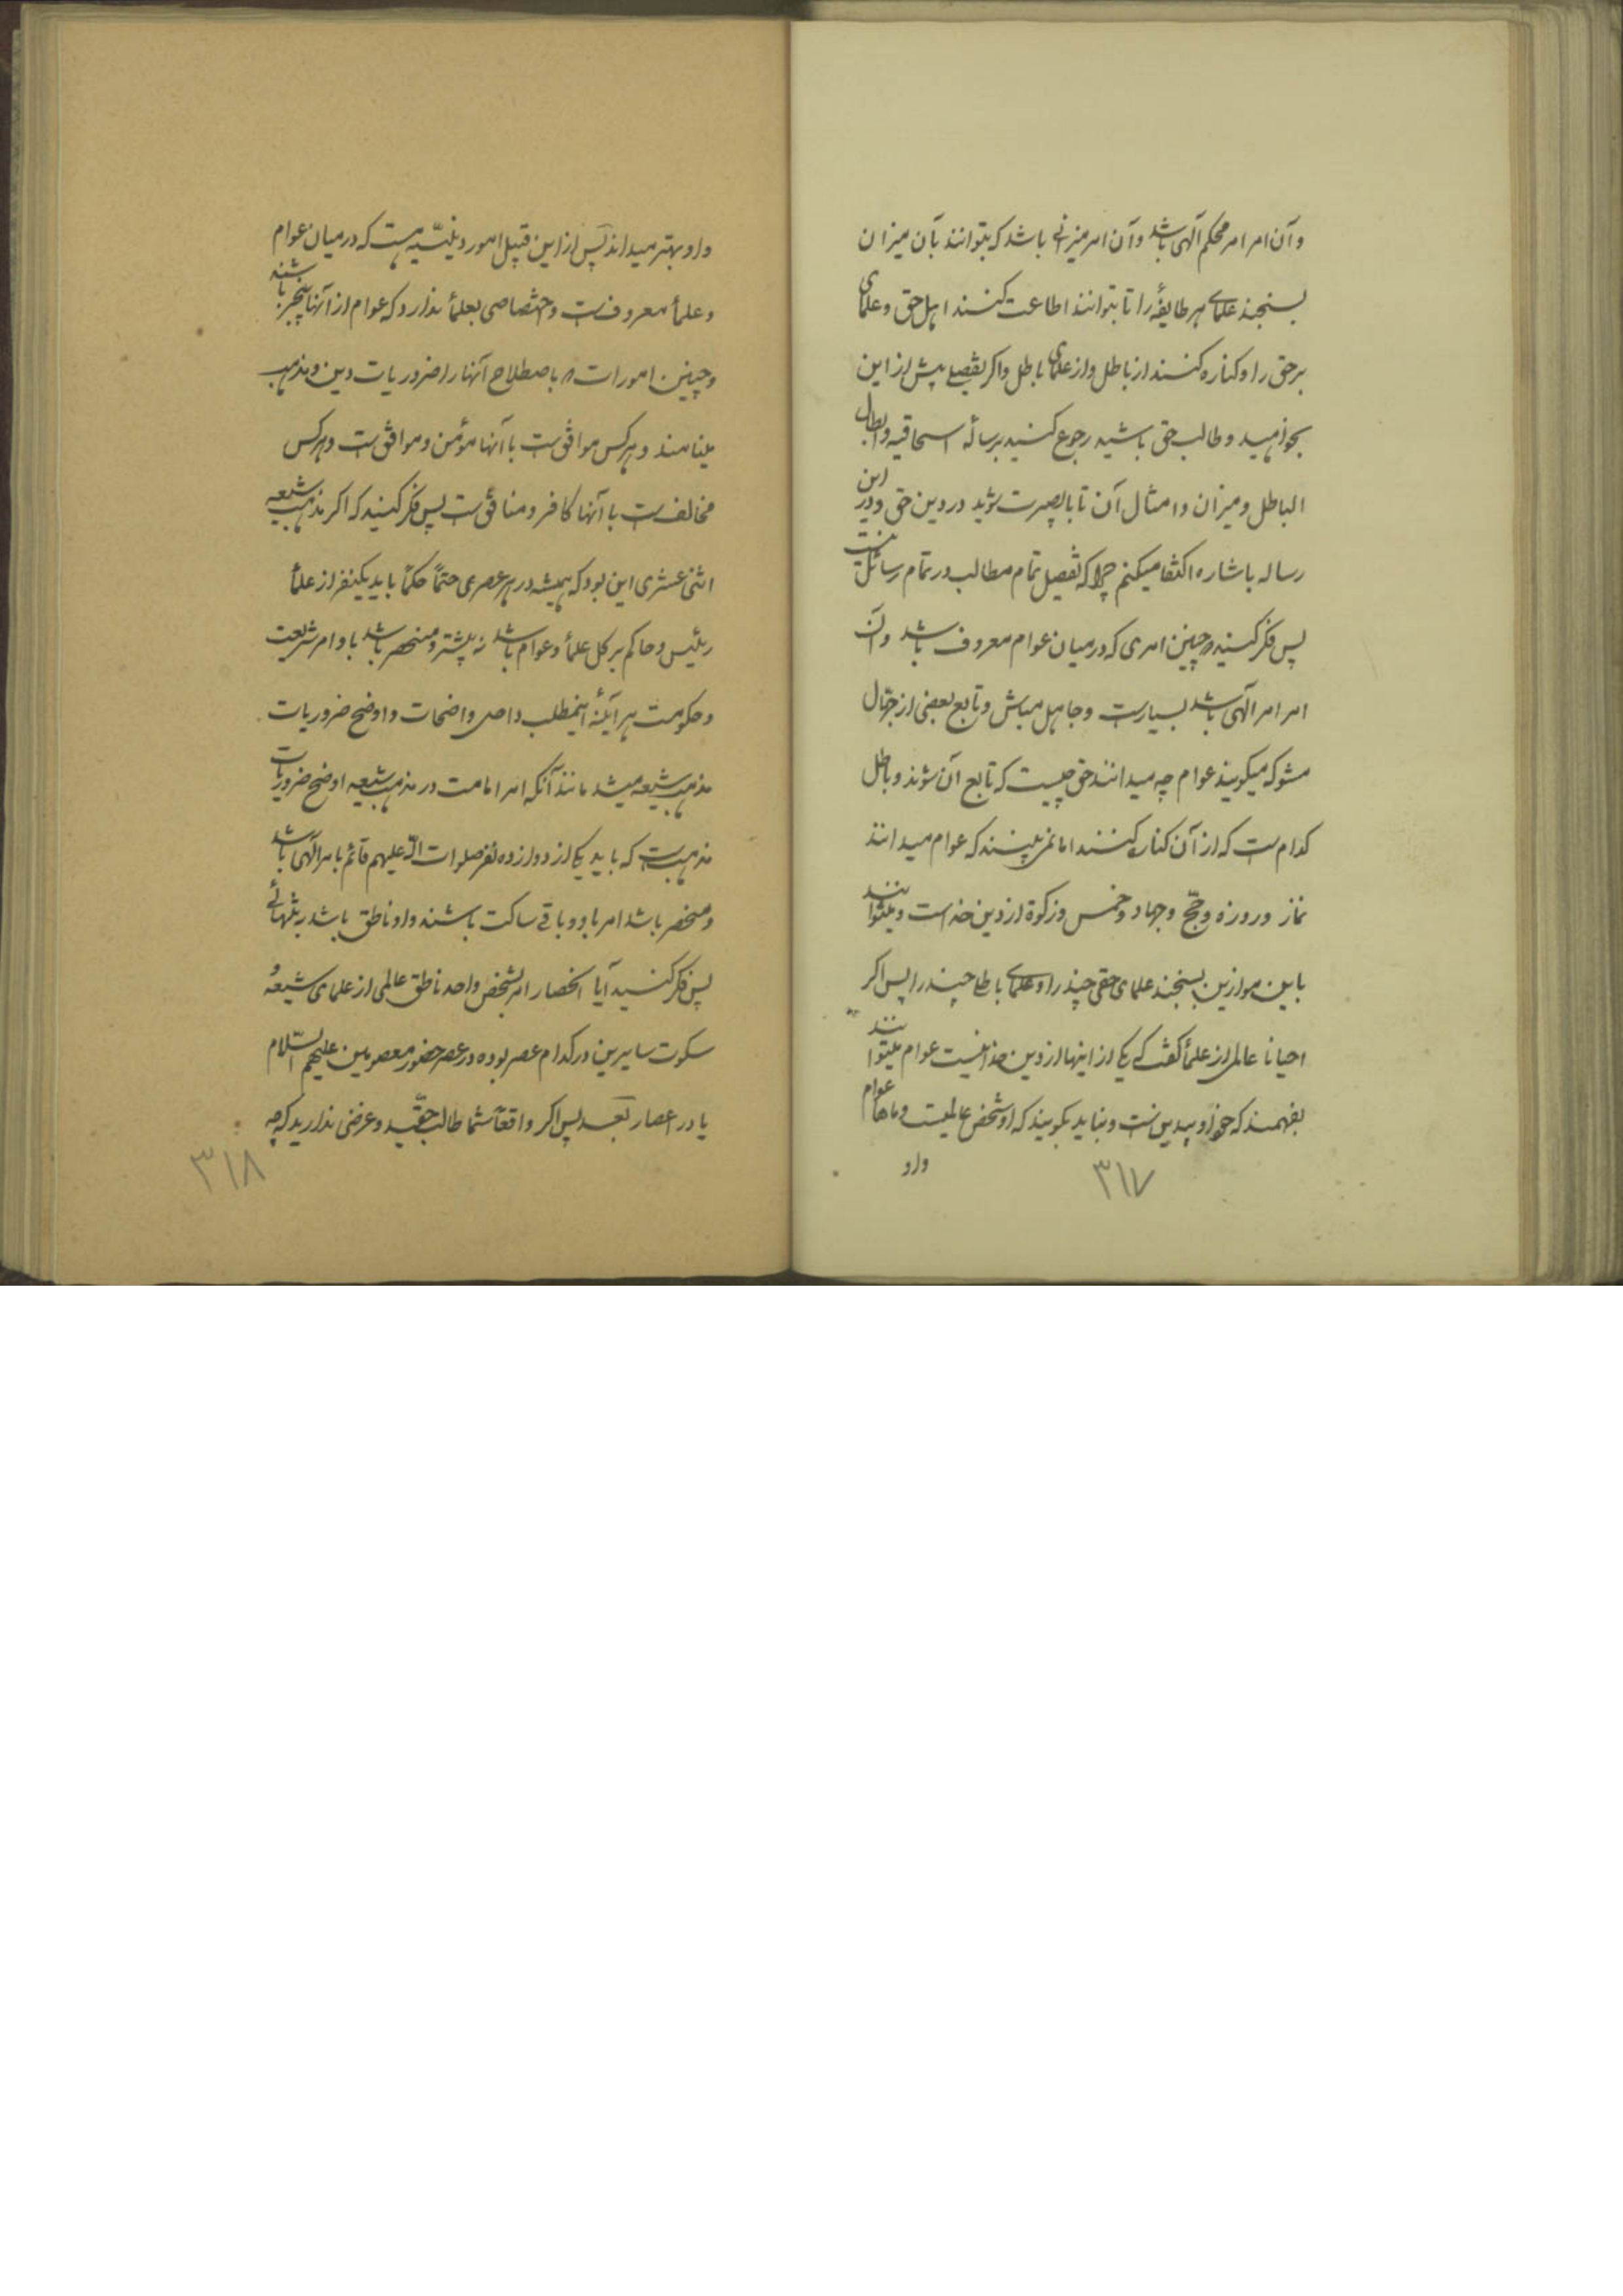 و آن امر امر محکم آلهی باشد و آن امر میزانی باشد که بتوانند بآن میزان
بسنجند علمای هر طایفهٔ را تا بتوانند اطاعت کنند اهل حق و علمای
بر حق را و کناره کنند از باطل و از علمای باطل و اکر تفصیلی بیش از این
بخواهید و طالب حق باشید رجوع کنید برسالهٔ اسحاقیه و ابطال
الباطل و میزان و امثال آن تا با بصیرت شوید در دین حق و در این
رساله باشاره اکتفا میکنم چرا که تفصیل تمام مطالب در تمام رسائل نیست
پس فکر کنید چنین امری که در میان عوام معروف باشد و آن
امر امر آلهی باشد بسیار است و جاهل مباش و تابع بعضی از جهّال
مشو که میکویند عوام چه میدانند حق چیست که تابع آن شوند و باطل
کدام است که از آن کناره کنند اما نمی‌بینند که عوام میدانند
نماز و روزه و حجّ و جهاد و خمس و زکوة از دین خدا است و میتوانند
باین موازین بسنجند علمای حقی چند را و علمای باطلی چند را پس اکر
احیانا عالمی از علمأ کفت که یکی از اینها از دین خدا نیست عوام میتوانند
بفهمند که خود او بیدین است و نباید بکویند که او شخص عالمیست و ماها عوام
و او
۳۱۷
و او بهتر میداند پس از این قبیل امور دینیّه هست که در میان عوام
و علمأ معروف است و اختصاصی بعلمأ ندارد که عوام از آنها بیخبر باشند
و چنین امور است که باصطلاح آنها را ضروریات دین و مذهب
مینامند و هر کس موافق است با آنها مؤمن و موافق است و هر کس
مخالف است با آنها کافر و منافق است پس فکر کنید که اکر مذهب شیعه
اثنی عشری این بود که همیشه در هر عصری حتماً حکماً باید یکنفر از علمأ
رئیس و حاکم بر کل علمأ و عوام باشد نه بیشتر و منحصر باشد باو امر شریعت
و حکومت هر آینه اینمطلب واضح واضحات و اوضح ضروریات
مذهب شیعه میشد مانند آنکه امر امامت در مذهب شیعه اوضح ضروریات
مذهب است که باید یکی از دوازده نفر صلوات الله علیهم قائم بامر آلهی باشد
و منحصر باشد امر باو و باقی ساکت باشند و او ناطق باشد بتنهائی
پس فکر کنید آیا انحصار امر بشخص واحد ناطق عالمی از علمای شیعه و
سکوت سایرین در کدام عصر بوده در عصر حضور معصومین علیهم السّلام
یا در اعصار بعد پس اکر واقعاً شما طالب حقّید و غرضی ندارید که چه
۳۱۸